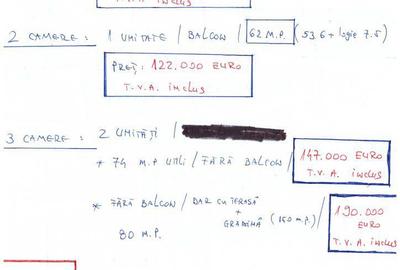 T.V.A. inclus
2 CAMERE: 1 UNITATE / BALCON / 62 M.P. (53.6 + logie 7.5)
PREȚ: 122.000 EURO
T.V.A. inclus
3 CAMERE: 2 UNITĂȚI /
* 74 M.P UTILI / FĂRĂ BALCON / 147.000 EURO
T.V.A. inclus
* FĂRĂ BALCON / DAR CU TERASĂ + GRĂDINĂ (150 M.P.) / 190.000 EURO
80 M.P. T.V.A. inclus